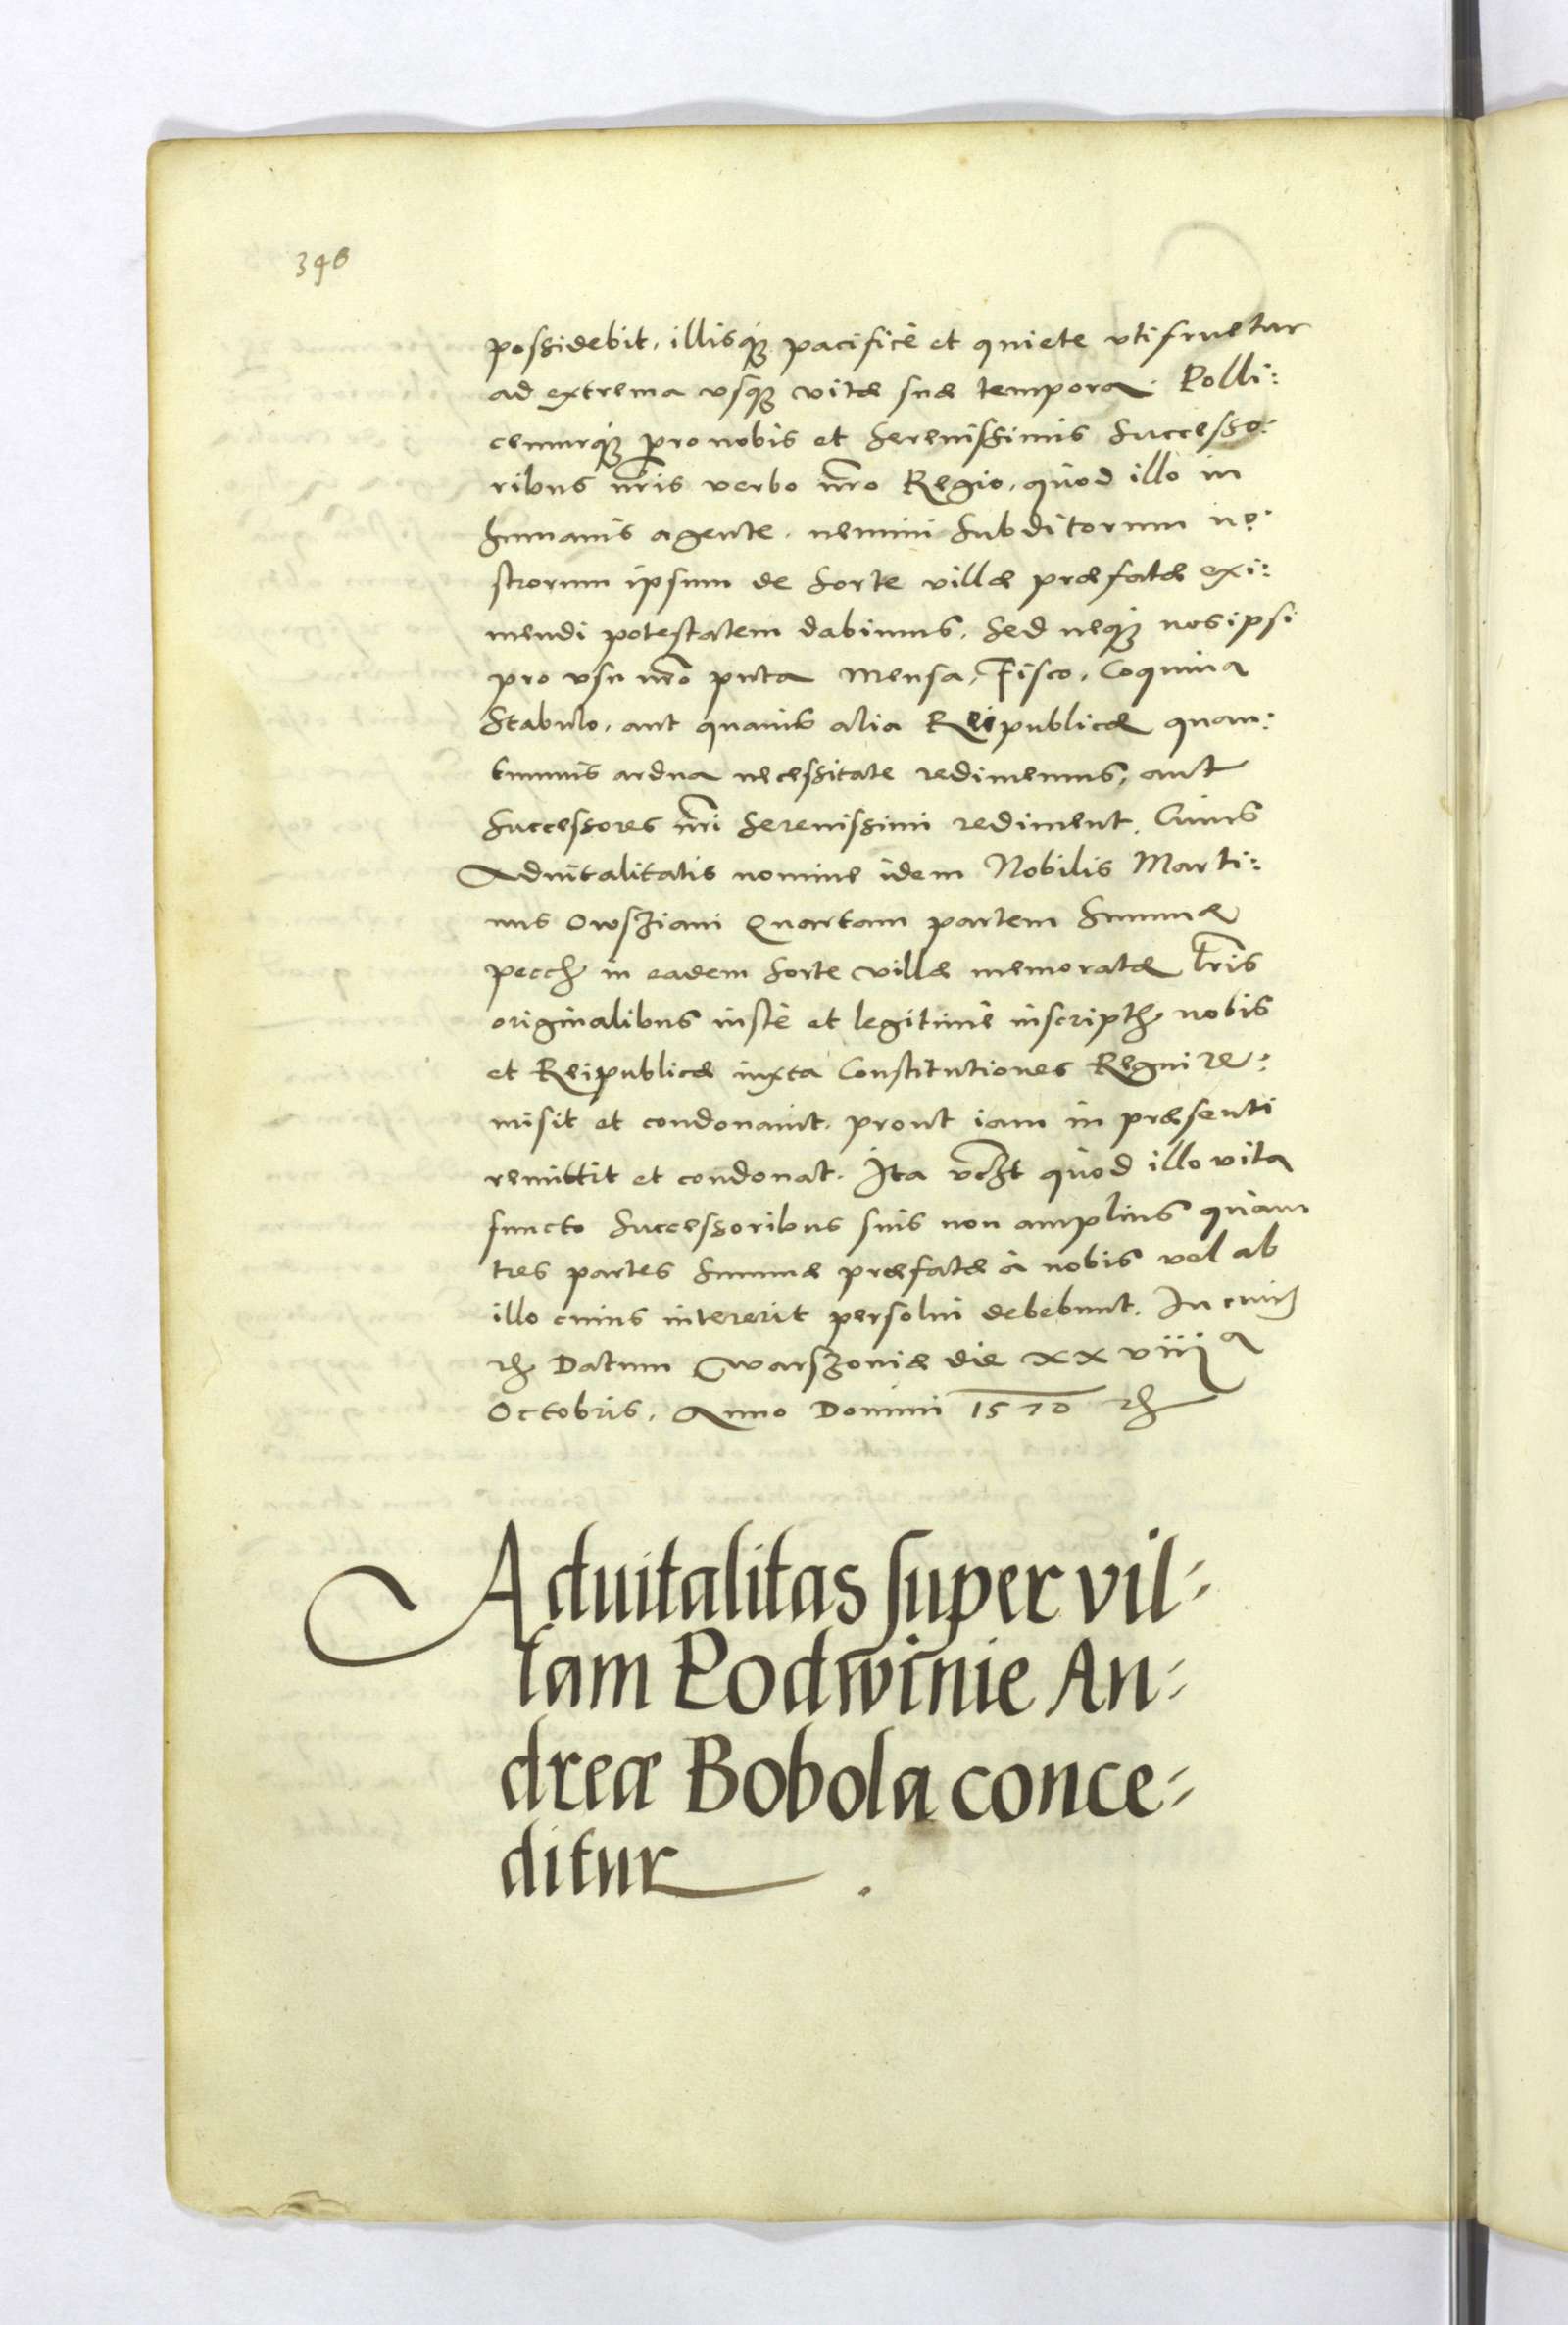 396
possidebit, illisq₃ pacificè et quiete vtifruetur
ad extrema vsq₃ vitæ suæ tempora. Polli:
cemurq₃ pro nobis et Serenissimis Successo:
ribus nr̃is verbo nr̃o Regio, quod illo in
humanis agente, nemini Subditorum no:
strorum ipsum de Sorte villæ præfatæ exi:
mendi potestatem dabimus, Sed neq₃ nos ipsi
pro vsu nr̃o puta Mensa, Fisco, Coquina
Stabulo, aut quauis alia Reipublicæ quan:
tumuis ardua necessitate redimemus, aut
Successores nr̃i Serenissimi rediment. Cuius
Aduitalitatis nomine idem Nobilis Marti:
nus Owsziani Quartam partem Summæ
pecch in eadem Sorte villæ memoratæ lr̃is
originalibus iustè et legitimè inscripth nobis
et Reipublicæ iuxta Constitutiones Regni re:
misit et condonauit, prout iam in præsenti
remittit et condonat. Ita vczt quod illo vita
functo Successoribus suis non amplius quàm
tres partes Summæ præfatæ à nobis vel ab
illo cuius intererit persolui debebunt. In cuiꝫ
rh Datum Warszouiæ die xxviiiȷ a
Octobris, Anno Domini 1570 rh
Aduitalitas super vil:
lam Podwinie An:
dreæ Bobola conce:
ditur.